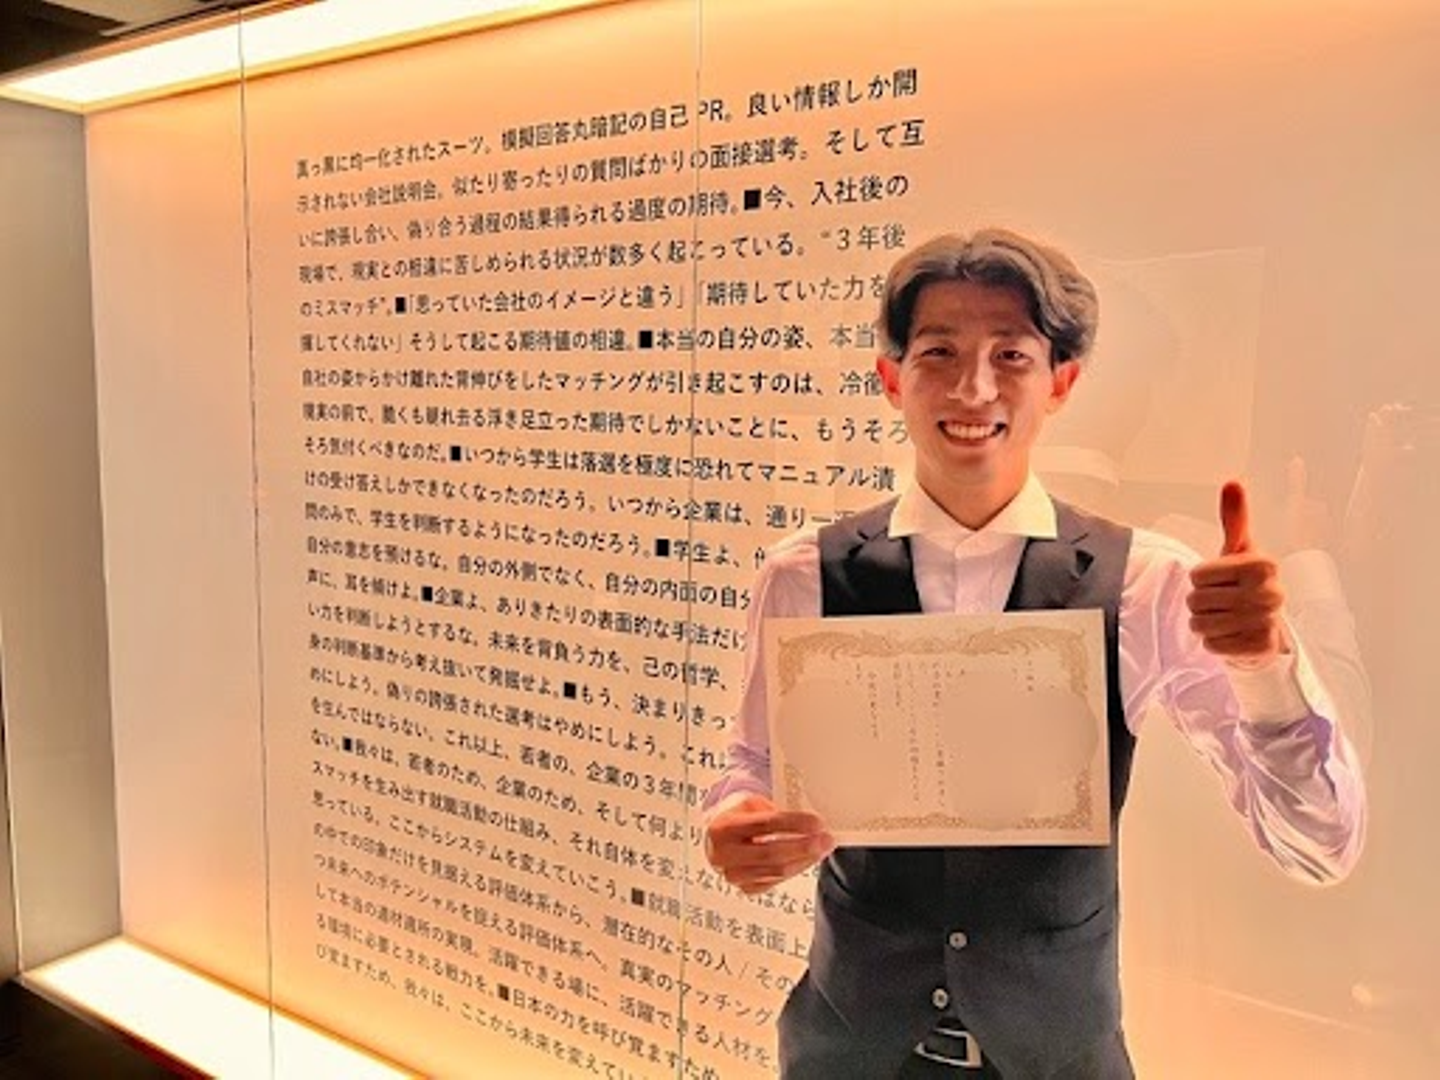 真っ黒に均一化されたスーツ。模擬回答丸暗記の自己PR。良い情報しか開
示されない会社説明会。似たり寄ったりの質問ばかりの面接選考。そして互
いに誇張し合い、偽り合う過程の結果得られる過度の期待。■今、入社後の
現場で、現実との相違に苦しめられる状況が数多く起こっている。“３年後
のミスマッチ”。■「思っていた会社のイメージと違う」「期待していた力を
揮してくれない」そうして起こる期待値の相違。■本当の自分の姿、本当
自社の姿からかけ離れた背伸びをしたマッチングが引き起こすのは、冷徹
現実の前で、脆くも崩れ去る浮き足立った期待でしかないことに、もうそろ
そろ気付くべきなのだ。■いつから学生は落選を極度に恐れてマニュアル漬
けの受け答えしかできなくなったのだろう。いつから企業は、通り一
問のみで、学生を判断するようになったのだろう。■学生よ、
自分の意志を預けるな。自分の外側でなく、自分の内面の自分
声に、耳を傾けよ。■企業よ、ありきたりの表面的な手法だけ
い力を判断しようとするな。未来を背負う力を、己の哲学、
身の判断基準から考え抜いて発掘せよ。■もう、決まりきっ
めにしよう。偽りの誇張された選考はやめにしよう。これ
を生んではならない。これ以上、若者の、企業の３年間
ない。■我々は、若者のため、企業のため、そして何より
スマッチを生み出す就職活動の仕組み、それ自体を変えなければなら
思っている。ここからシステムを変えていこう。■就職活動を表面上
の中での印象だけを見据える評価体系から、潜在的なその人/その
つ未来へのポテンシャルを捉える評価体系へ。真実のマッチング
して本当の適材適所の実現。活躍できる場に、活躍できる人材を
る環境に必要とされる戦力を。■日本の力を呼び覚ますため
び覚ますため、我々は、ここから未来を変えてい